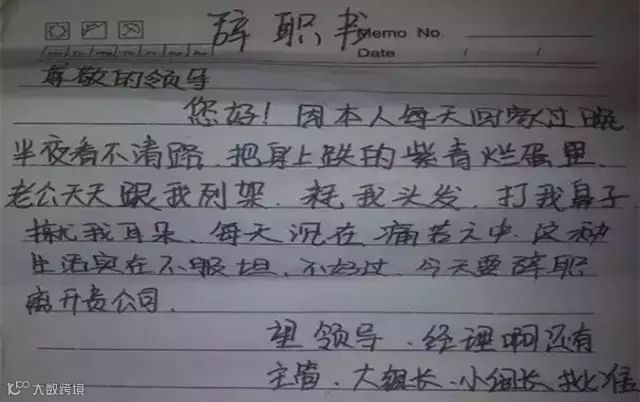 辞职书
Memo No.
Date / /
尊敬的领导
您好！因本人每天回家过晚
半夜看不清路、把身上跌的紫青烂蛋里、
老公天天跟我别架、耗我头发、打我鼻子、
揪我耳朵、每天沉在痛若之中、这种
生活实在不服坦、不好过、今天要辞职
离开贵公司.
望领导、经理啊还有
主管、大组长、小组长、批准
大数跨境